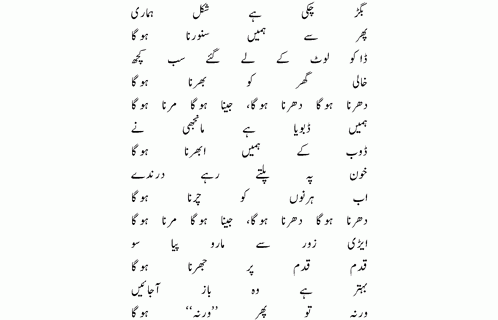 بگڑ چکی ہے شکل ہماری
پھر سے ہمیں سنورنا ہو گا
ڈاکو لوٹ کے لے گئے سب کچھ
خالی گھر کو بھرنا ہو گا
دھرنا ہو گا دھرنا ہو گا، جینا ہو گا مرنا ہو گا
ہمیں ڈبویا ہے مانجھی نے
ڈوب کے ہمیں ابھرنا ہو گا
خون پہ پلتے رہے درندے
اب ہرنوں کو چرنا ہو گا
دھرنا ہو گا دھرنا ہو گا، جینا ہو گا مرنا ہو گا
ایڑی زور سے مارو پیا سو
قدم قدم پر جھرنا ہو گا
بہتر ہے وہ باز آجائیں
ورنہ تو پھر ’’ورنہ‘‘ ہو گا